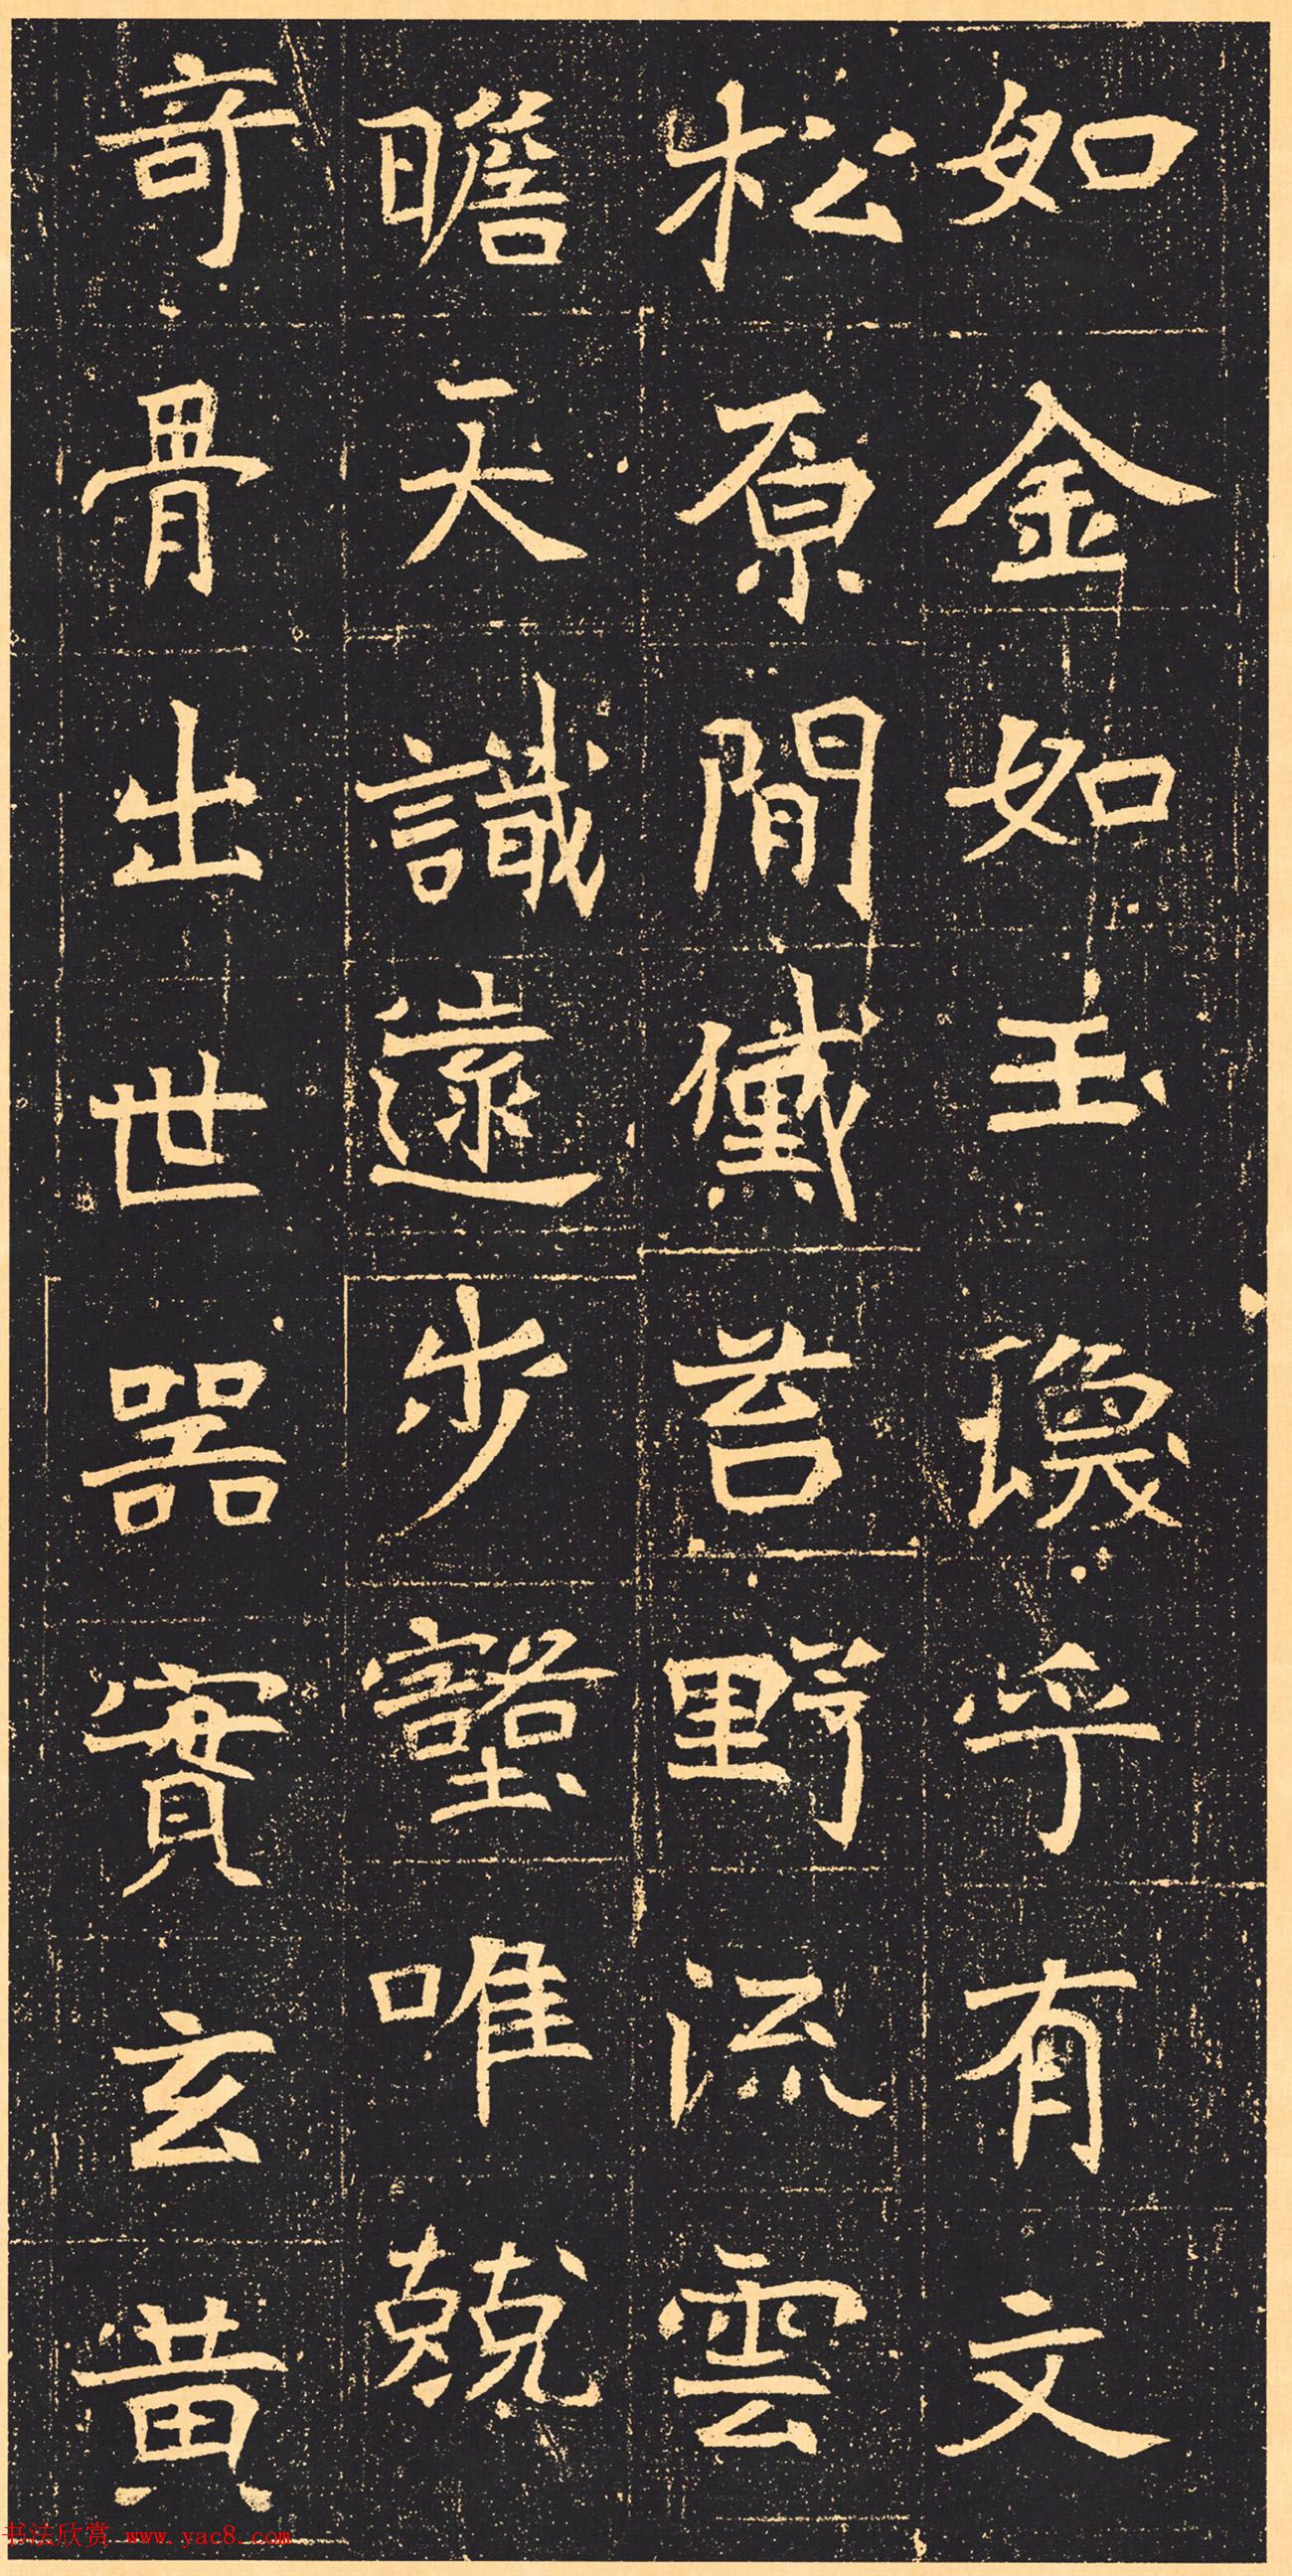 如金如玉瓊乎有文
松原間黛苕野流雲
瞻天識遠步壑唯兢
奇骨出世器實玄黃
书法欣赏 www.yac8.com